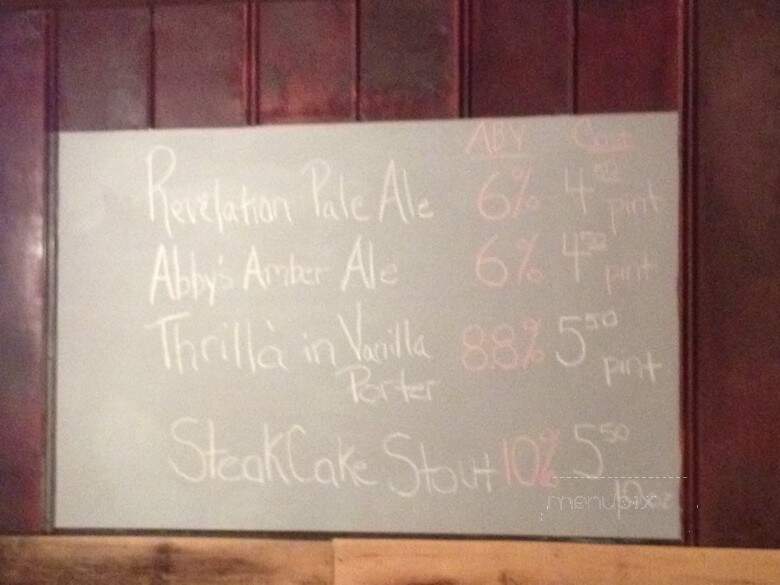 ABV Cost
Revelation Pale Ale 6% 4 pint
Abby's Amber Ale 6% 4 pint
Thrilla' in Vanilla 8.8% 5 50 pint
Porter
SteakCake Stout 10% 5 50
10 oz
menupix